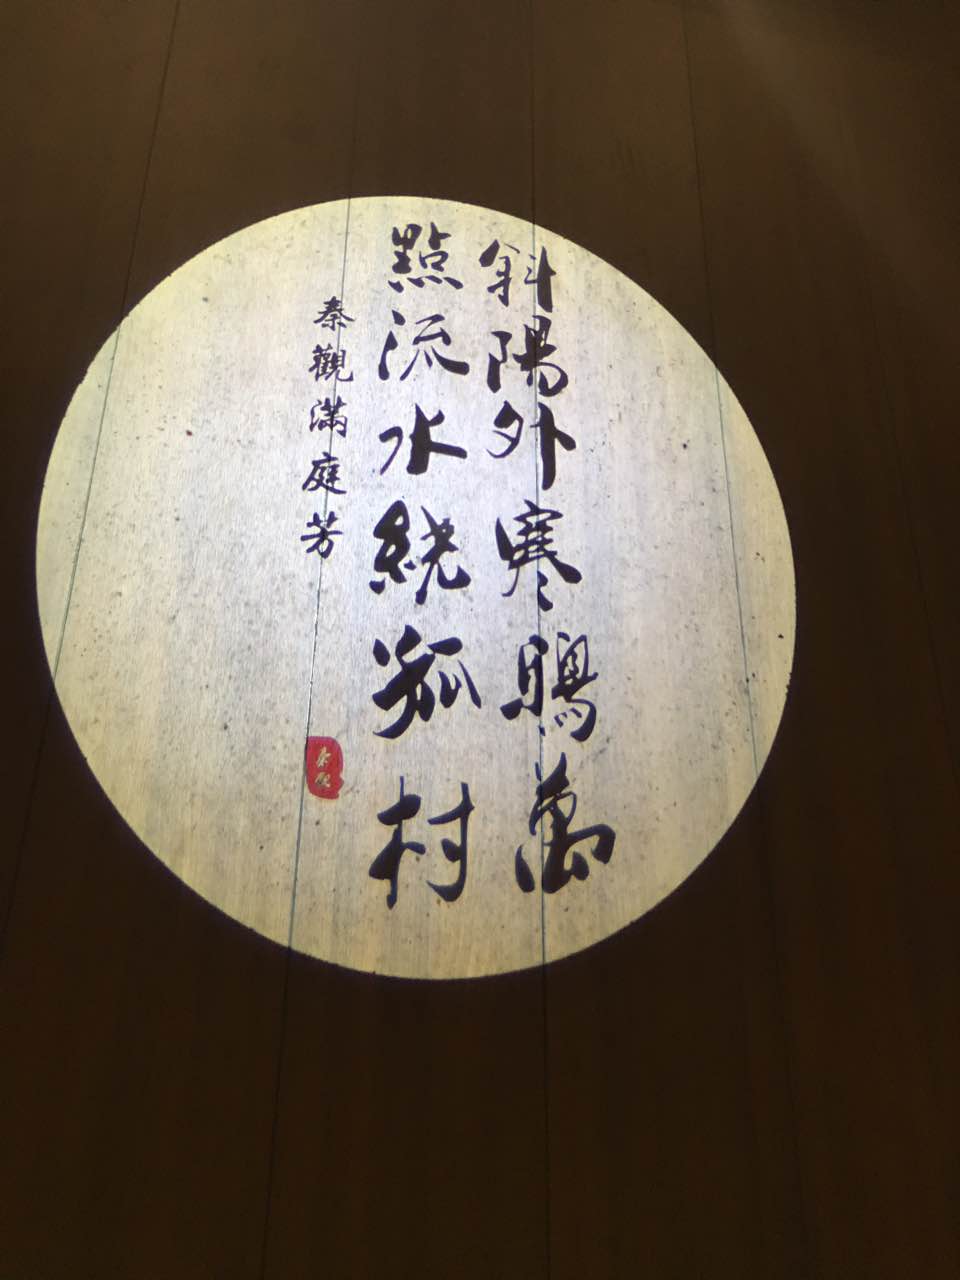 斜陽外寒鴉萬
點流水繞孤村
秦觀滿庭芳
秦觀